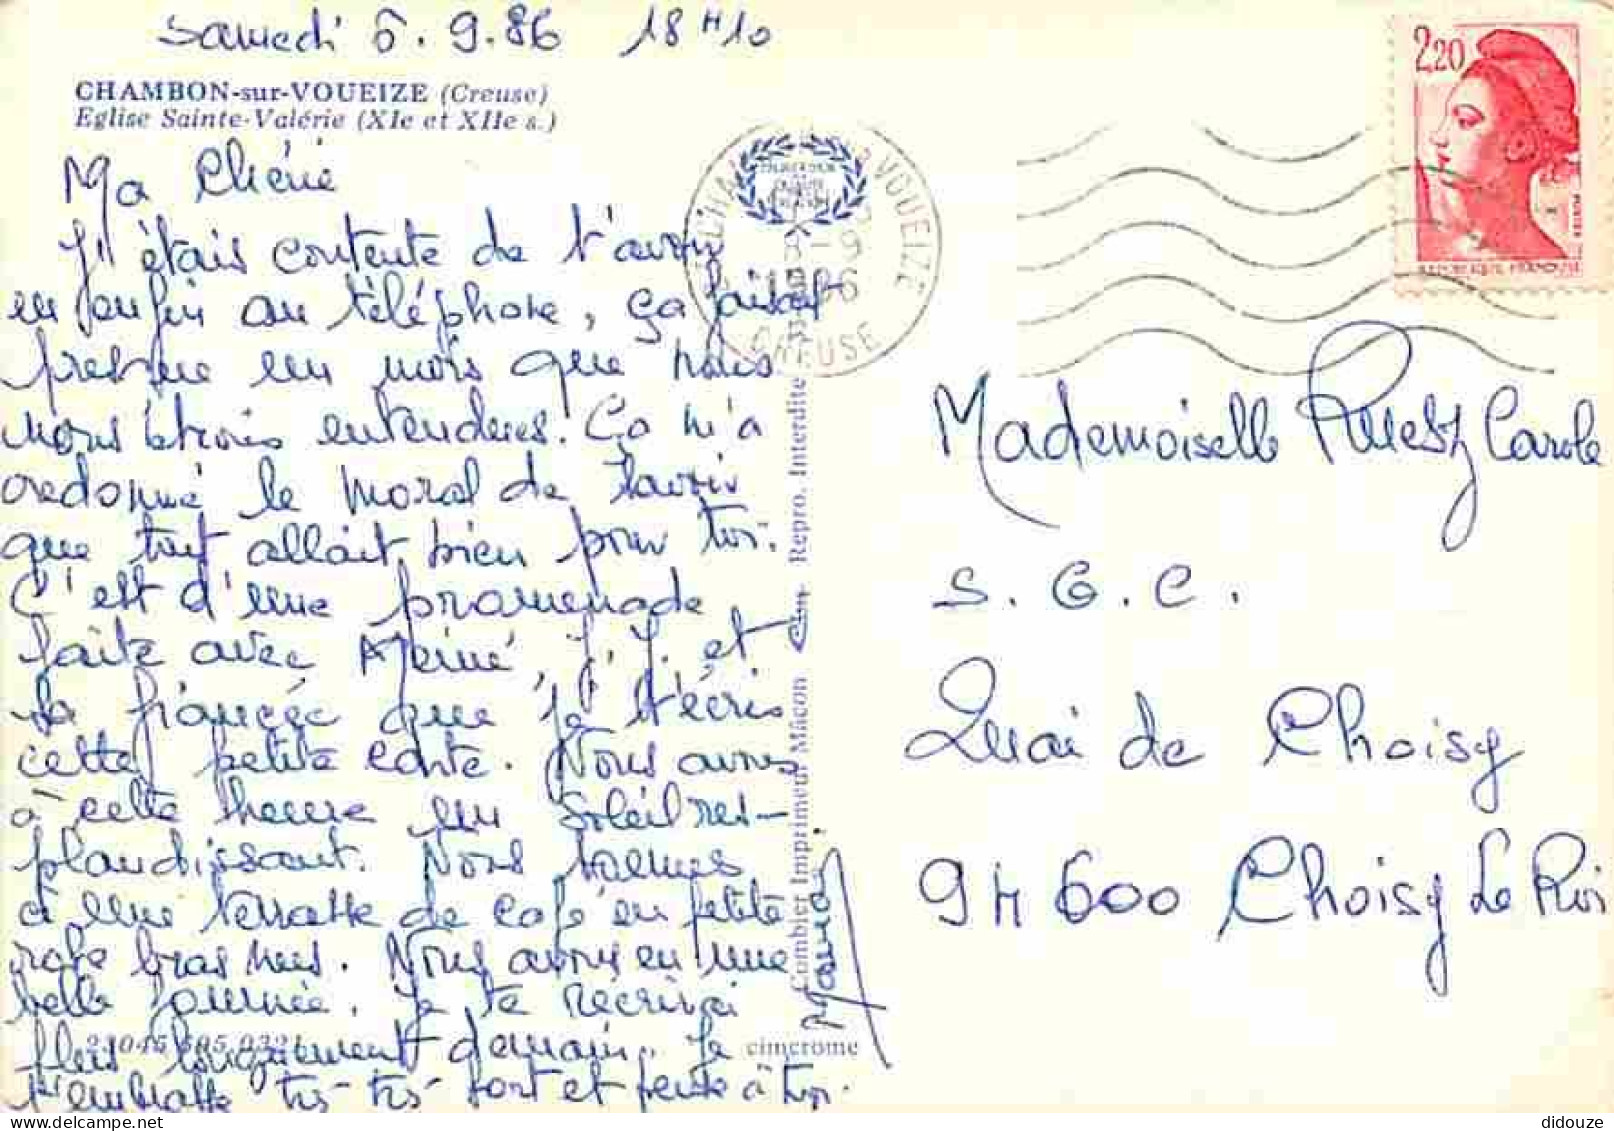 Samedi 6.9.86 18H10
CHAMBON-sur-VOUEIZE (Creuse)
Eglise Sainte-Valérie (XIe et XIIe s.)
Ma Chérie
J'étais contente de t'avoir
enfin au téléphone, ça faisait
presque un mois que nous
nous étions entendues. Ça m'a
redonné le moral de savoir
que tout allait bien pour toi.
C'est d'une promenade
faite avec Mémé, J.J. et
sa fiancée que je t'écris
cette petite carte. Nous avons
à cette heure un soleil res-
plendissant. Nous sommes
à une terrasse de café en petite
robe bras nus. Nous avons eu une
belle journée. Je te récrirai
plus longuement demain. Je
t'embrasse très très fort et pense à toi.
Maman
2,20
REPUBLIQUE FRANÇAISE
VOUEIZE
8-9
1986
CREUSE
Combier Imprimeur Mâcon Cim Repro. Interdite
cimcrome
Mademoiselle Carole
S.G.C.
Quai de Choisy
94600 Choisy Le Roi
didouze